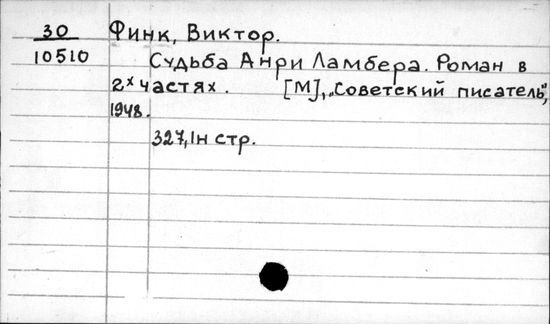 30
10510
Финк, Виктор.
Судьба Анри Ламбера. Роман в
2х частях. [М], „Советский писатель",
1948.
327, 1н стр.